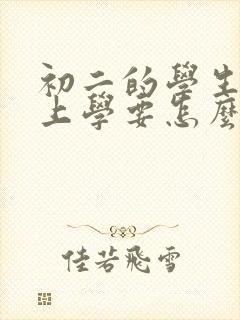 初二的學生
上學要怎麼
佳若飛雪